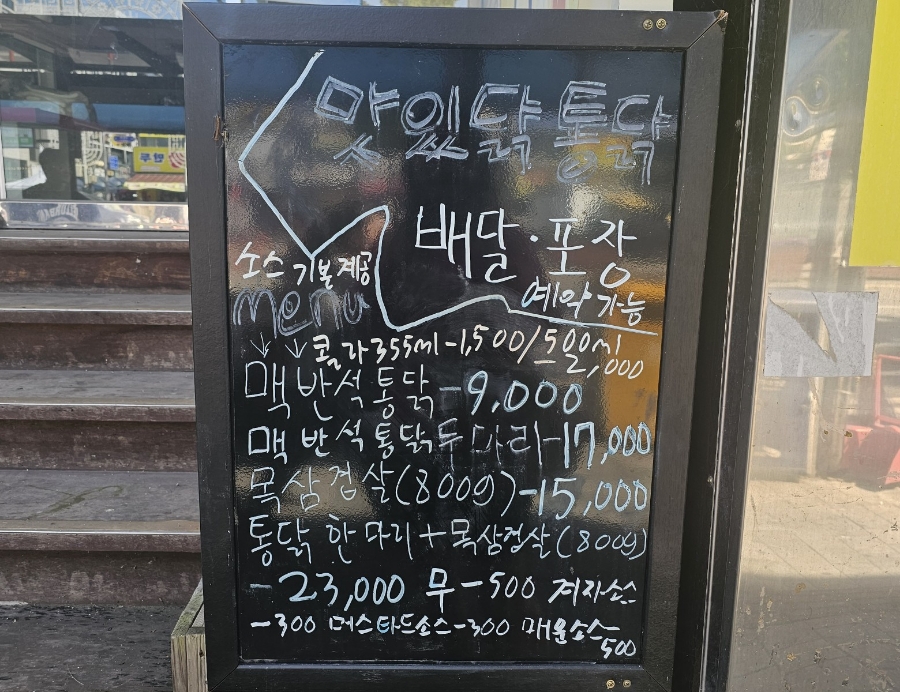 맛있닭통닭
배달·포장
예약가능
소스 기본제공
menu
콜라355ml-1,500/500ml 2,000
맥반석통닭-9,000
맥반석통닭두마리-17,000
목삼겹살(800g)-15,000
통닭 한마리+목삼겹살(800g)
-23,000 무-500 겨자소스
-300 머스타드소스-300 매운소스
500